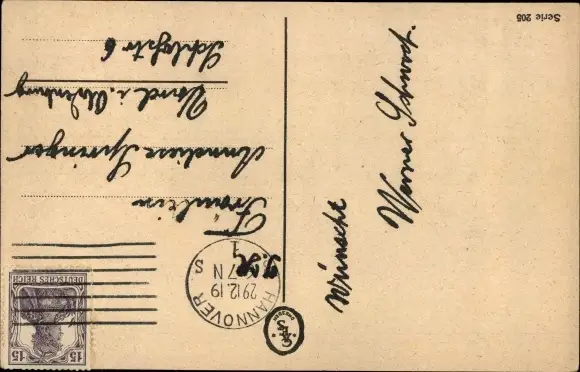 Serie 205
wünscht
Werner Schwarz.
Fräulein
Anneliese Springer
Varel i. Oldenburg
Schloßstr 6
HANNOVER
1
S
29.12.19
6-7 N
DEUTSCHES REICH
15
15